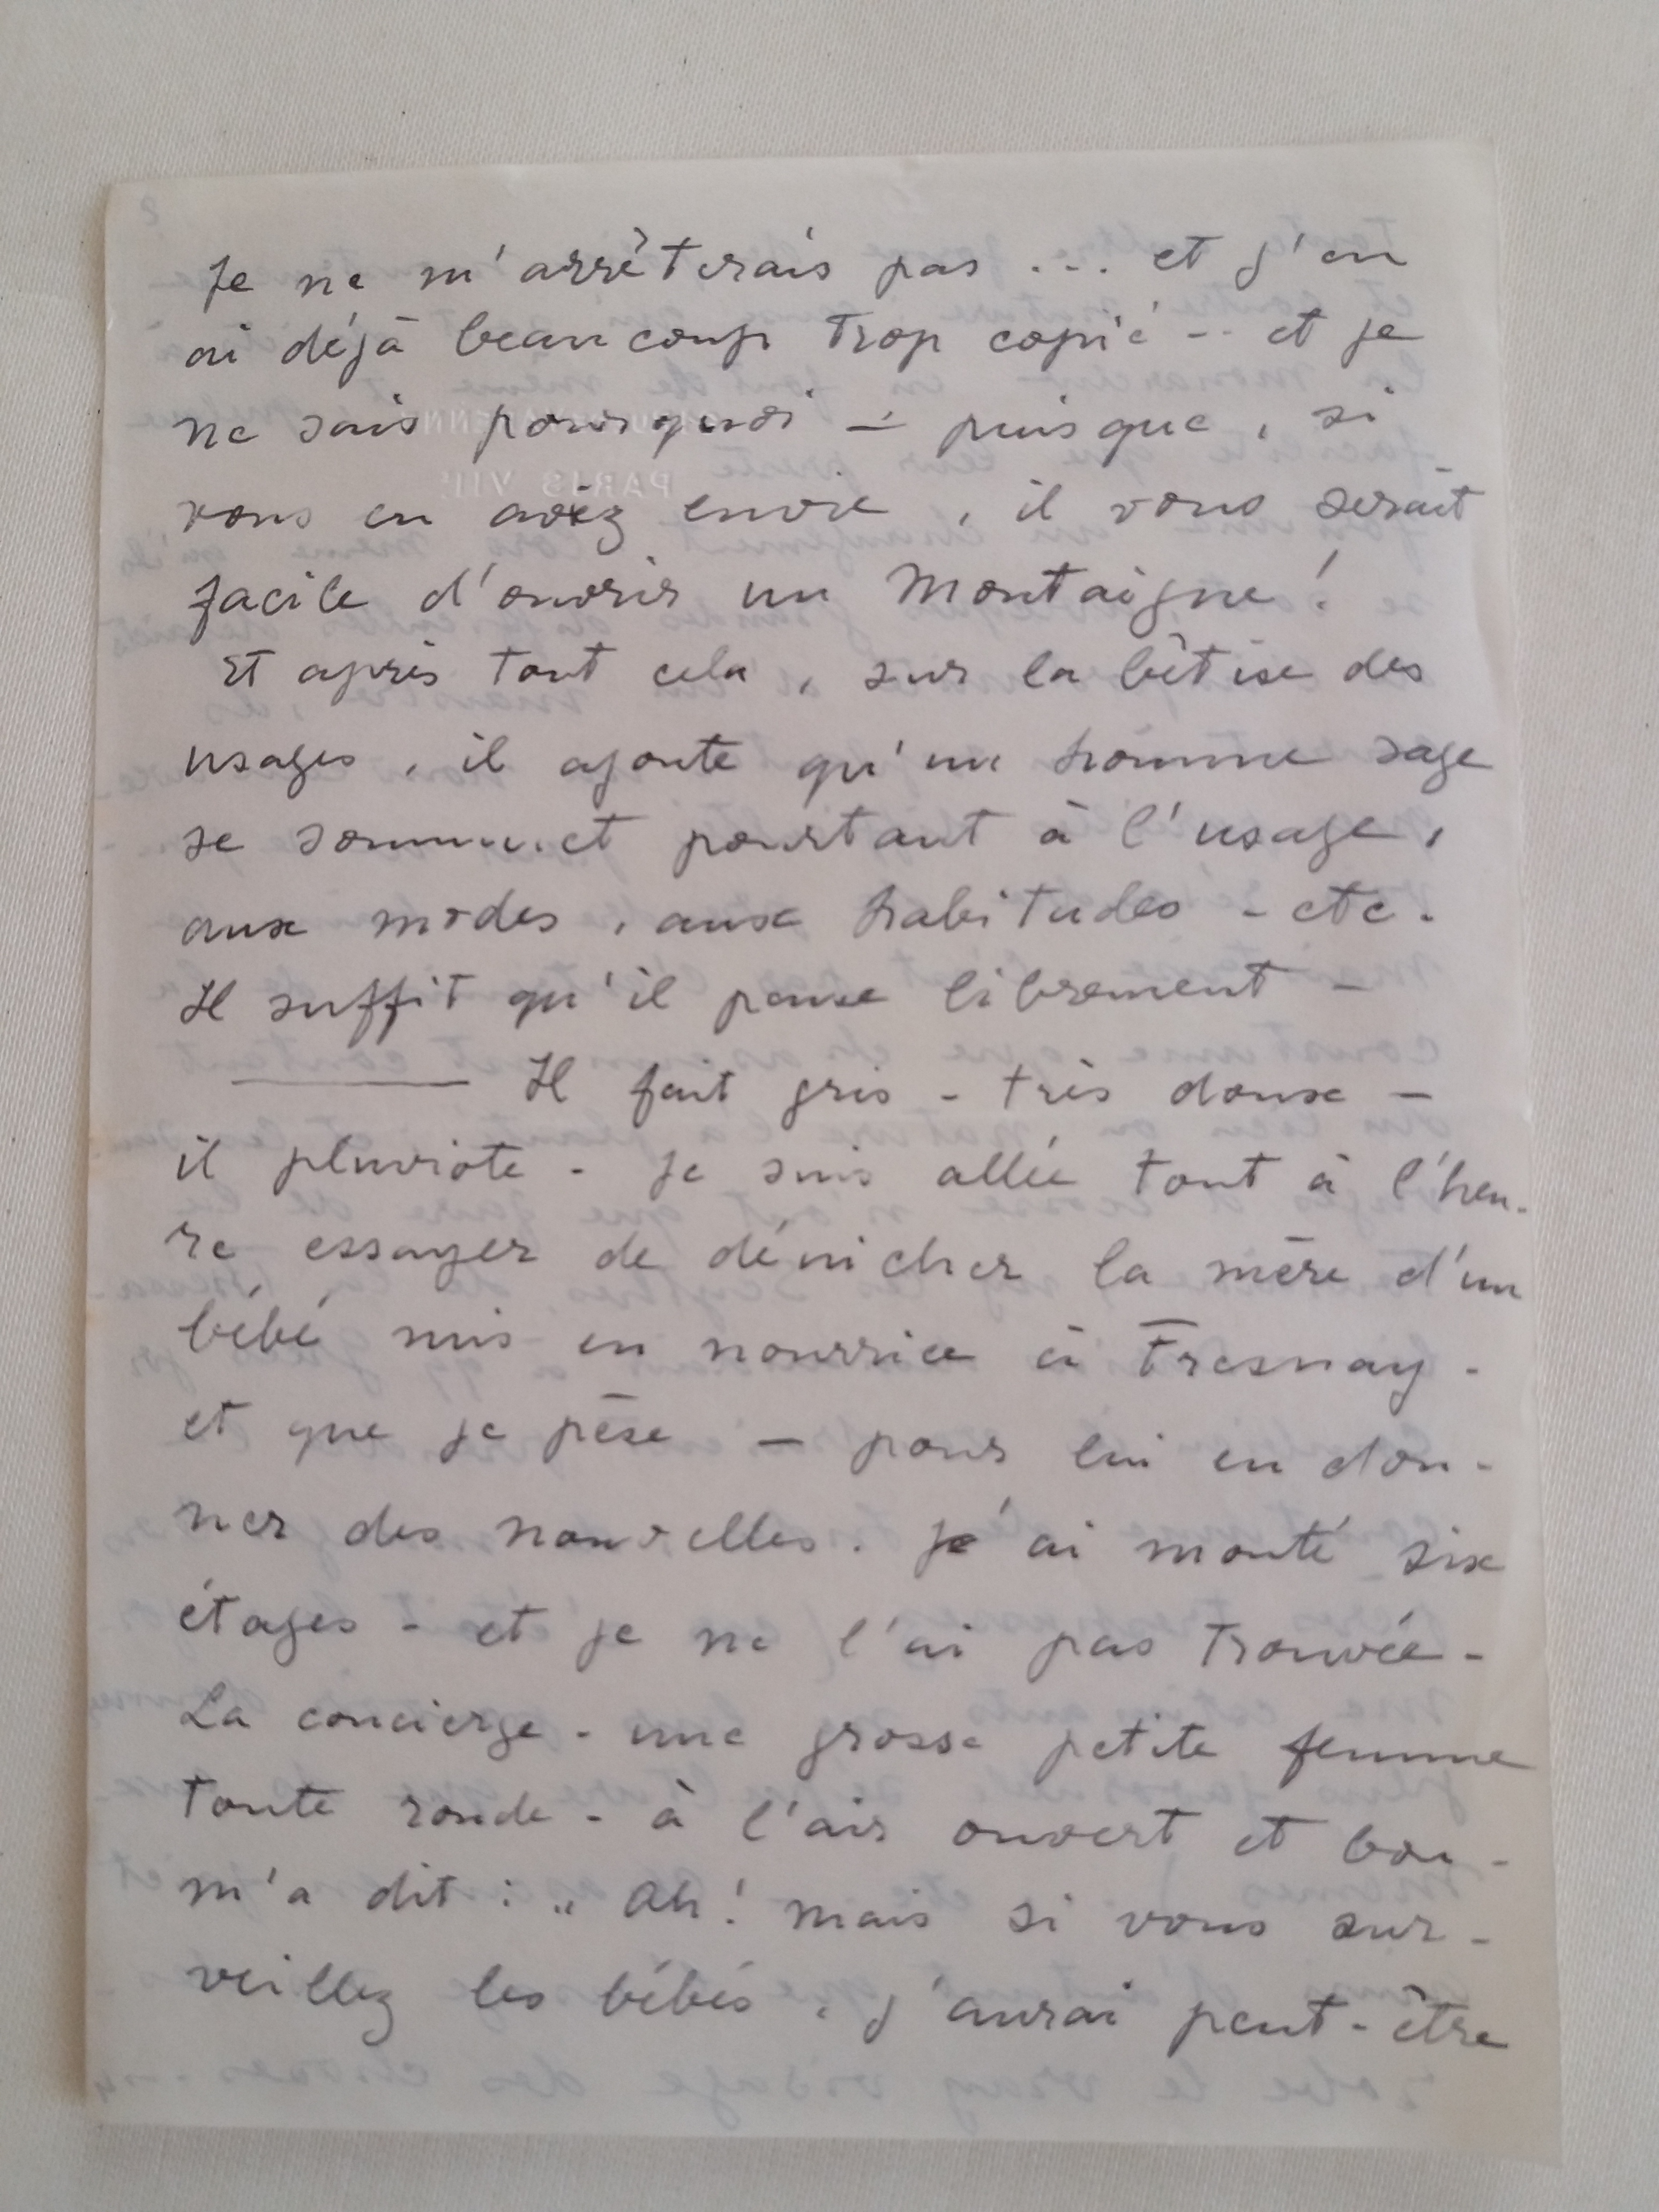 Je ne m'arrêterais pas ... et j'en
ai déjà beaucoup trop copié -- et je
ne sais pourquoi - puisque, si
vous en aviez envie, il vous serait
facile d'ouvrir un Montaigne!
Et après tout cela, sur la bêtise des
usages, il ajoute qu'un homme sage
se soumet pourtant à l'usage,
aux modes, aux habitudes - etc.
Il suffit qu'il pense librement -
——— Il fait gris - très doux -
il pluviote - Je suis allée tout à l'heu-
re essayer de dénicher la mère d'un
bébé mis en nourrice à Fresnay -
et que je pèse - pour lui en don-
ner des nouvelles. J'ai monté six
étages - et je ne l'ai pas trouvée -
La concierge - une grosse petite femme
toute ronde - à l'air ouvert et bon -
m'a dit : " Ah! mais si vous sur-
veillez les bébés, j'aurai peut-être
PARIS VIIe